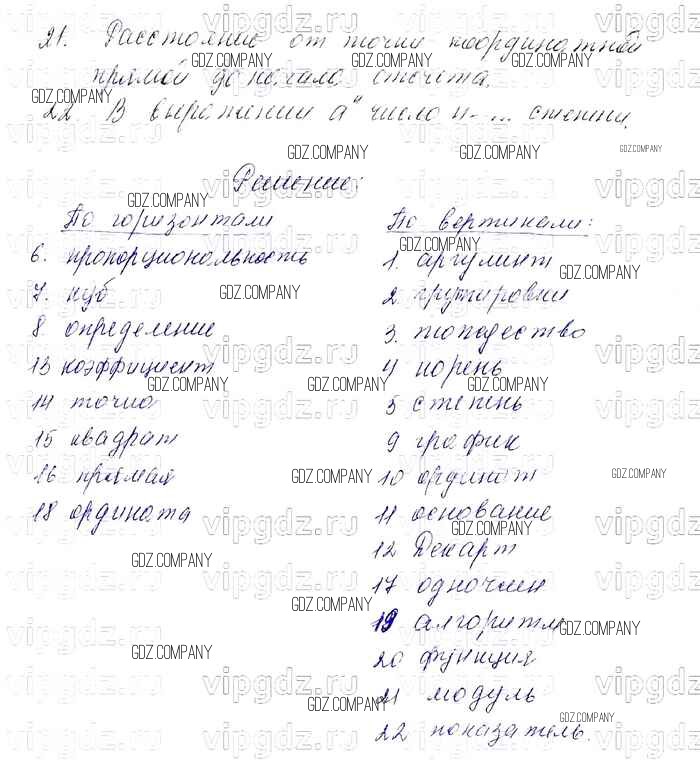 21. Расстояние от точки координатной
прямой до начала отсчета.
22 В выражении aⁿ число n - ... степени.
Решение:
По горизонтали
6. пропорциональность
7. куб
8 определение
13 коэффициент
14 точка
15 квадрат
16 прямая
18 ордината
По вертикали:
1. аргумент
2 группировки
3. тождество
4 корень
5 степень
9 график
10 ординат
11 основание
12 Декарт
17 одночлен
19 алгоритм
20 функция
21 модуль
22 показатель.
vipgdz.ru
GDZ.COMPANY